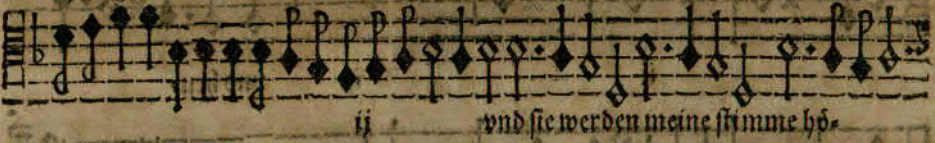 ij vnd sie werden meine stimme hö-